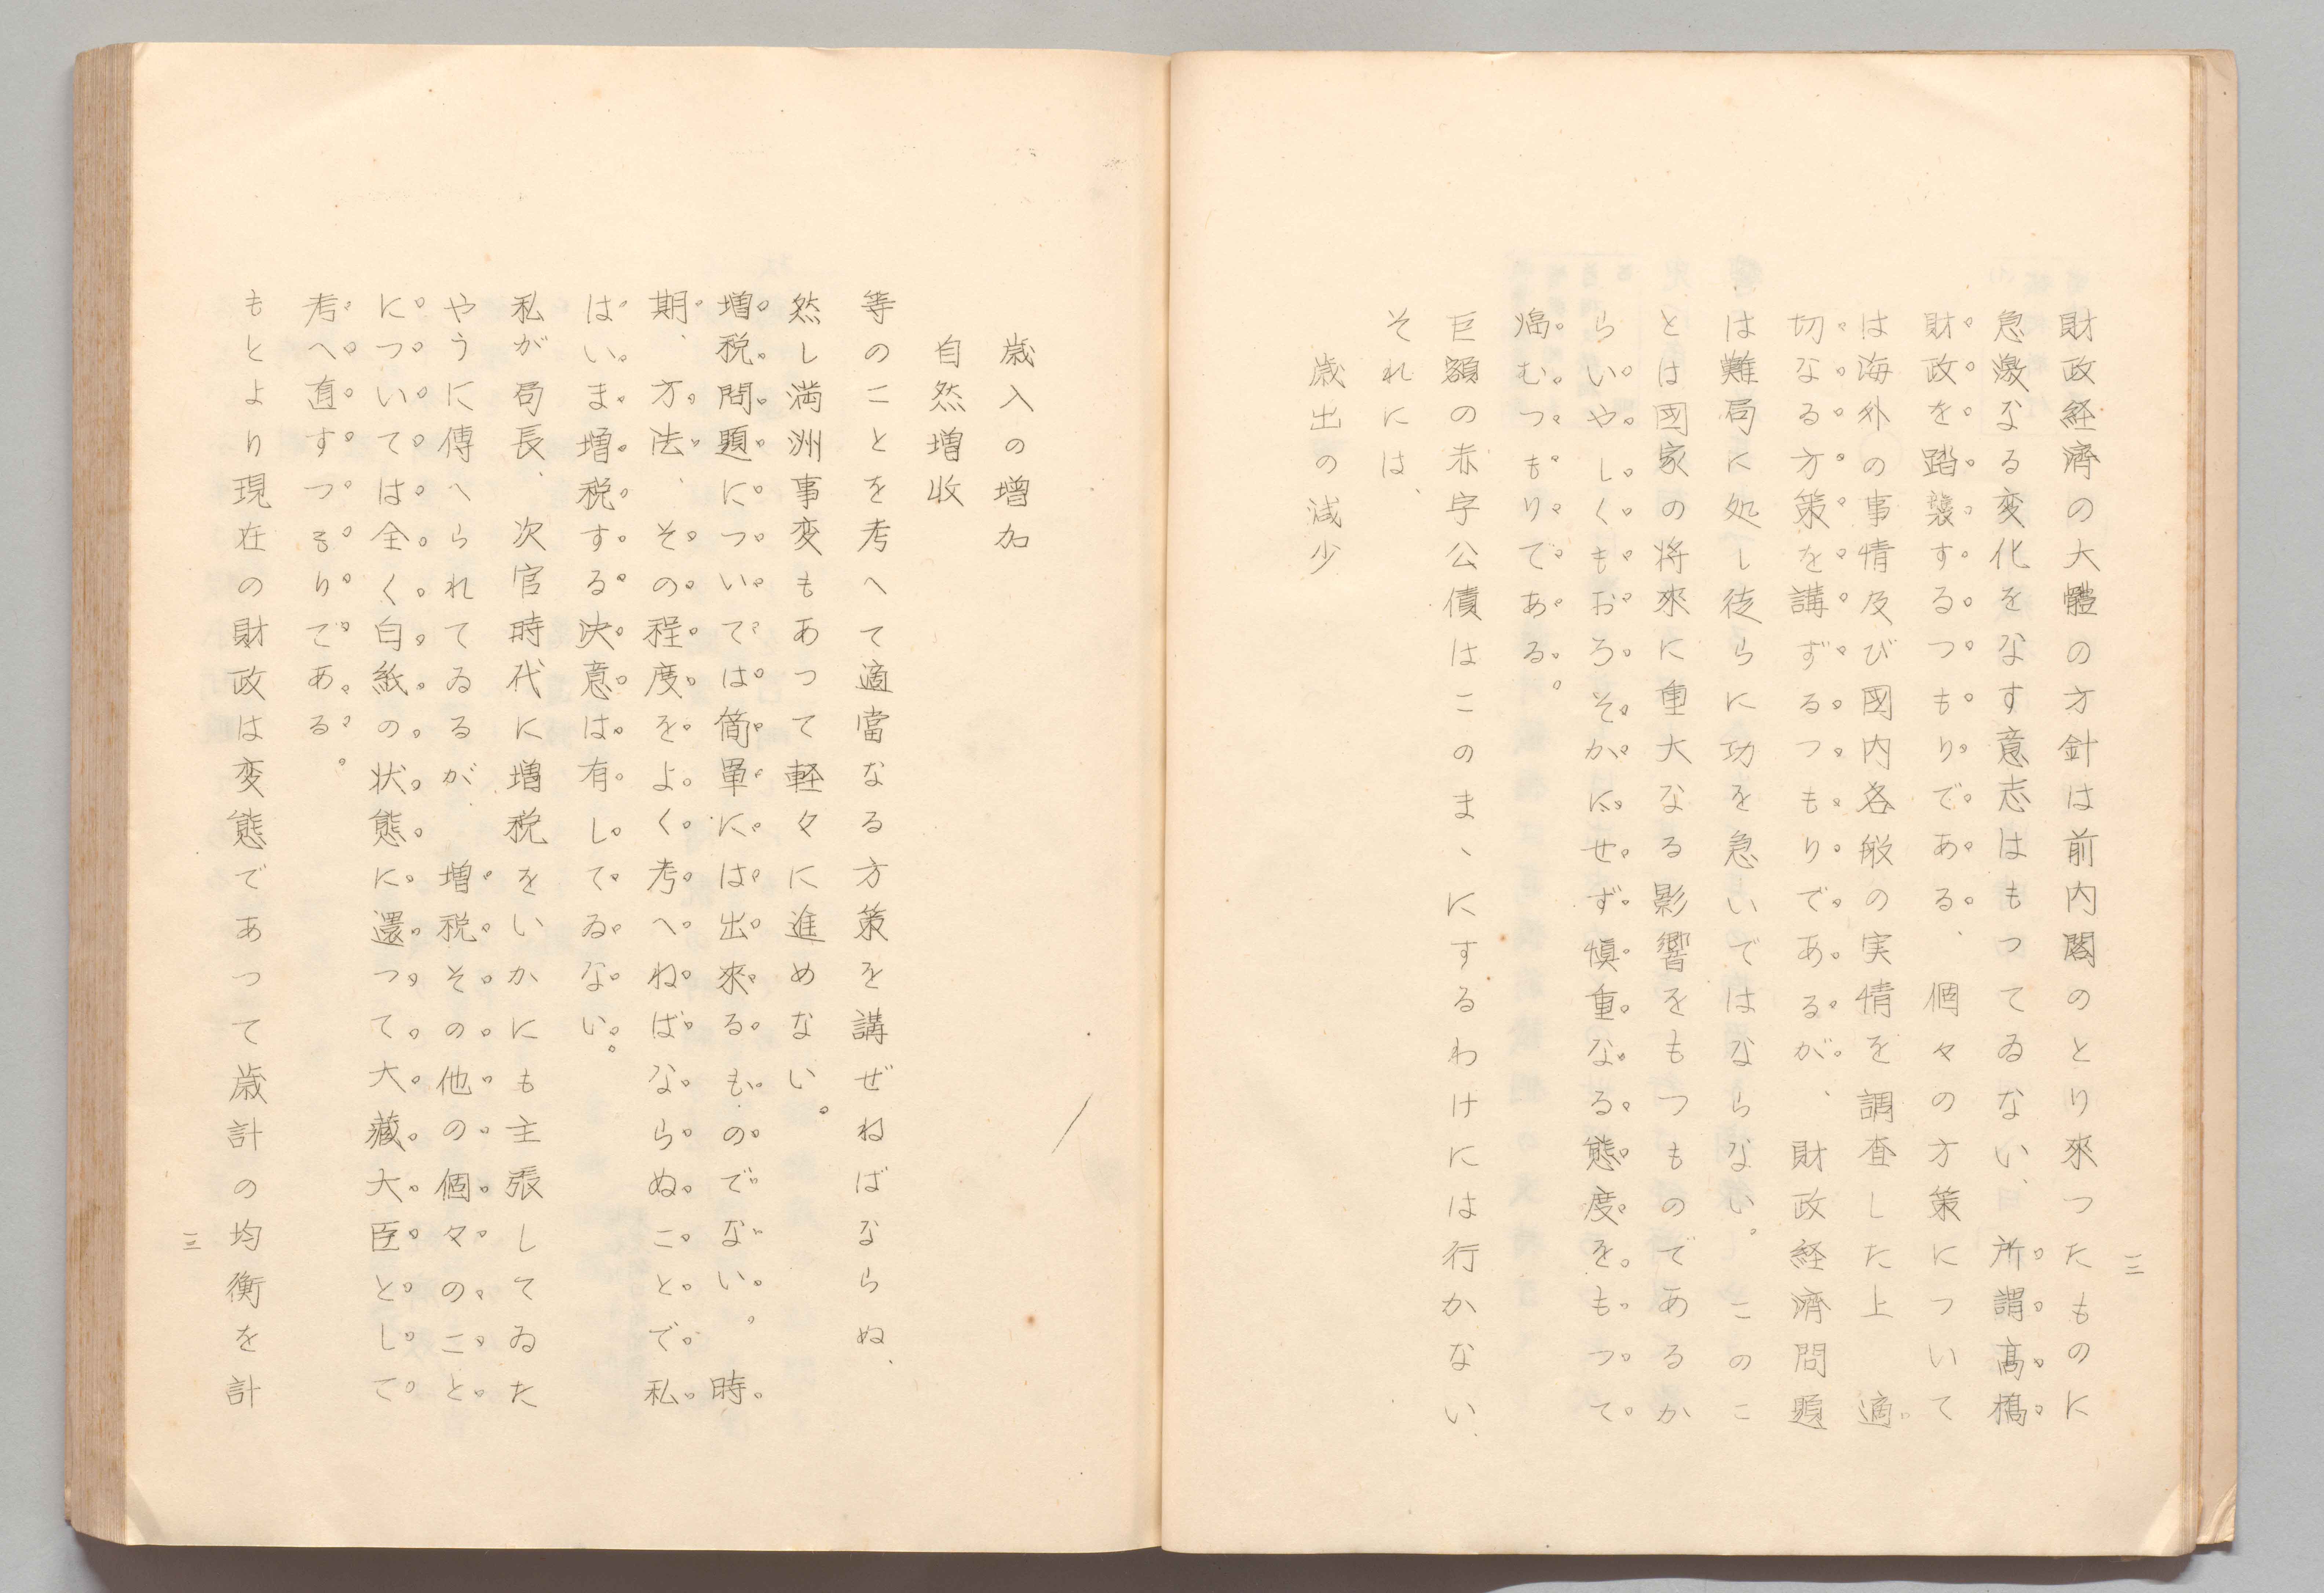 二
財政経濟の大體の方針は前内閣のとり來つたものに
急激なる変化をなす意志はもつてゐない、所謂高橋
財政を踏襲するつもりである、個々の方策について
は海外の事情及び國内各般の実情を調査した上 適
切なる方策を講ずるつもりであるが、財政経濟問題
は難局に処し徒らに功を急いではならない。このこ
とは國家の将來に重大なる影響をもつものであるか
らいやしくもおろそかにせず愼重なる態度をもつて
むつもりである。
巨額の赤字公債はこのまゝにするわけには行かない
それには、
歳出の減少
歳入の増加
自然増收
等のことを考へて適當なる方策を講ぜねばならぬ、
然し満洲事変もあつて軽々に進めない。
増税問題については簡單には出來るものでない。時
期、方法、その程度をよく考へねばならぬことで私
はいま増税する決意は有してゐない。
私が局長、次官時代に増税をいかにも主張してゐた
やうに傳へられてゐるが 増税その他の個々のこと
については全く白紙の状態に還つて大藏大臣として
考へ直すつもりである。
もとより現在の財政は変態であつて歳計の均衡を計
三